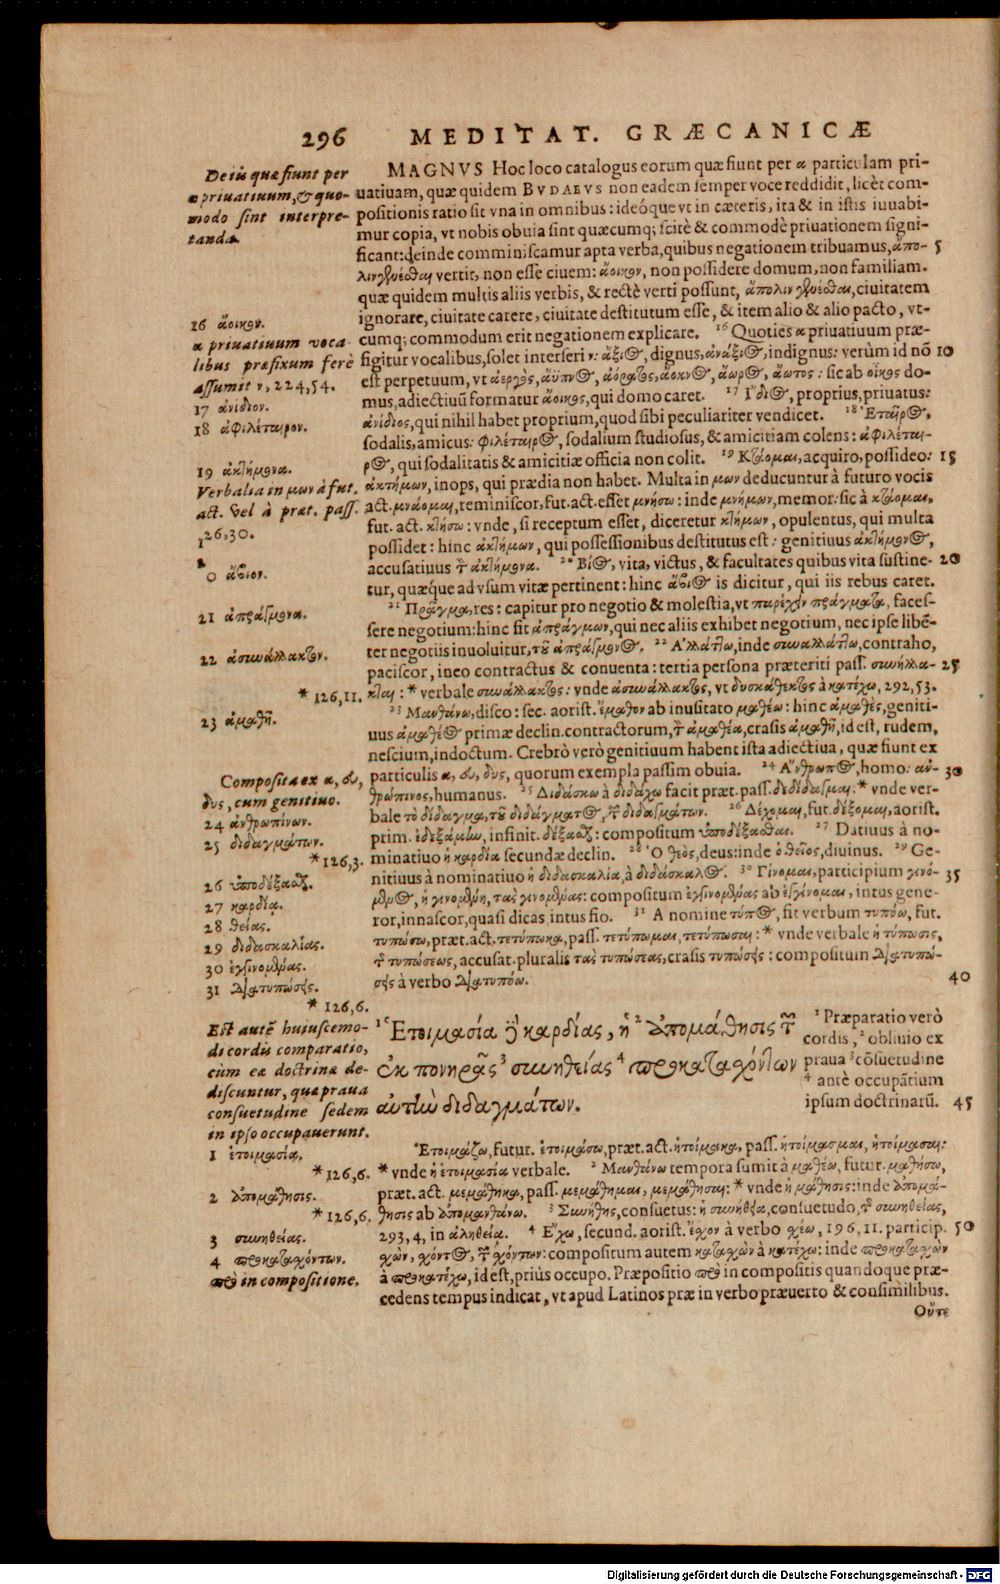 296 MEDITAT. GRÆCANICÆ
De iis quæ fiunt per
α priuatiuum, & quo-
modo sint interpre-
tanda.
16 ἄοικον.
α priuatiuum voca-
libus præfixum ferè
assumit ν, 224, 54.
17 ἀνίδιον.
18 ἀφιλέταιρον.
19 ἀκτήμονα.
Verbalia in μων à fut.
act. vel à præt. pass.
126, 30.
20 ἄβιον.
21 ἀπράγμονα.
22 ἀσυνάλλακτον.
* 126, 11.
23 ἀμαθῆ.
Composita ex α, εὐ,
δυς, cum genitiuo.
24 ἀνθρωπίνων.
25 διδαγμάτων.
* 126, 3.
26 ὑποδέξασθαι.
27 καρδίᾳ.
28 θείας.
29 διδασκαλίας.
30 ἐγγινομένας.
31 διατυπώσεις.
* 126, 6.
MAGNVS Hoc loco catalogus eorum quæ fiunt per α particulam pri-
uatiuam, quæ quidem BVDAEVS non eadem semper voce reddidit, licèt com-
positionis ratio sit vna in omnibus: ideóque vt in cæteris, ita & in istis iuuabi-
mur copia, vt nobis obuia sint quæcumq; scitè & commodè priuationem signi-
ficant: deinde comminiscamur apta verba, quibus negationem tribuamus, ἄπο- 5
λιν γενέσθαι vertit, non esse ciuem: ἄοικον, non possidere domum, non familiam.
quæ quidem multis aliis verbis, & rectè verti possunt, ἄπολιν γενέσθαι, ciuitatem
ignorare, ciuitate carere, ciuitate destitutum esse, & item alio & alio pacto, vt-
cumq; commodum erit negationem explicare. 16 Quoties α priuatiuum præ-
figitur vocalibus, solet interseri ν: ἄξιος, dignus, ἀνάξιος, indignus: verùm id nō 10
est perpetuum, vt ἀεργὸς, ἄϋπνος, ἀόρατος, ἄοκνος, ἄωρος, ἄωτος: sic ab οἶκος do-
mus, adiectiuū formatur ἄοικος, qui domo caret. 17 Ἴδιος, proprius, priuatus:
ἀνίδιος, qui nihil habet proprium, quod sibi peculiariter vendicet. 18 Ἑταῖρος,
sodalis, amicus: φιλέταιρος, sodalium studiosus, & amicitiam colens: ἀφιλέται-
ρος, qui sodalitatis & amicitiæ officia non colit. 19 Κτάομαι, acquiro, possideo: 15
ἀκτήμων, inops, qui prædia non habet. Multa in μων deducuntur à futuro vocis
act. μνάομαι, reminiscor, fut. act. esset μνήσω: inde μνήμων, memor: sic à κτάομαι,
fut. act. κτήσω: vnde, si receptum esset, diceretur κτήμων, opulentus, qui multa
possidet: hinc ἀκτήμων, qui possessionibus destitutus est: genitiuus ἀκτήμονος,
accusatiuus τὸν ἀκτήμονα. 20 Βίος, vita, victus, & facultates quibus vita sustine- 20
tur, quæque ad vsum vitæ pertinent: hinc ἄβιος is dicitur, qui iis rebus caret.
21 Πρᾶγμα, res: capitur pro negotio & molestia, vt παρέχειν πράγματα, faces-
sere negotium: hinc fit ἀπράγμων, qui nec aliis exhibet negotium, nec ipse libē-
ter negotiis inuoluitur, τοῦ ἀπράγμονος. 22 Ἀλλάττω, inde συναλλάττω, contraho,
paciscor, ineo contractus & conuenta: tertia persona præteriti pass. συνήλλα- 25
κται: * verbale συναλλακτος: vnde ἀσυνάλλακτος, vt δυσκάθεκτος à κατέχω, 292, 53.
23 Μανθάνω, disco: sec. aorist. ἔμαθον ab inusitato μαθέω: hinc ἀμαθὴς, geniti-
uus ἀμαθέος primæ declin. contractorum, τὸν ἀμαθέα, crasis ἀμαθῆ, id est, rudem,
nescium, indoctum. Crebrò verò genitiuum habent ista adiectiua, quæ fiunt ex
particulis α, εὐ, δυς, quorum exempla passim obuia. 24 Ἄνθρωπος, homo: ἀν- 30
θρώπινος, humanus. 25 Διδάσκω à διδάχω facit præt. pass. δεδίδαγμαι: * vnde ver-
bale τὸ δίδαγμα, τοῦ διδάγματος, τῶν διδαγμάτων. 26 Δέχομαι, fut. δέξομαι, aorist.
prim. ἐδεξάμην, infinit. δέξασθαι: compositum ὑποδέξασθαι. 27 Datiuus à no-
minatiuo ἡ καρδία secundæ declin. 28 Ὁ θεὸς, deus: inde ὁ θεῖος, diuinus. 29 Ge-
nitiuus à nominatiuo ἡ διδασκαλία, à διδάσκαλος. 30 Γίνομαι, participium γινό- 35
μενος, ἡ γινομένη, τὰς γινομένας: compositum ἐγγινομένας ab ἐγγίνομαι, intus gene-
ror, innascor, quasi dicas intus fio. 31 A nomine τύπος, fit verbum τυπόω, fut.
τυπώσω, præt. act. τετύπωκα, pass. τετύπωμαι, τετύπωσαι: * vnde verbale ἡ τύπωσις,
τῆς τυπώσεως, accusat. pluralis τὰς τυπώσεας, crasis τυπώσεις: compositum διατυπώ-
σεις à verbo διατυπόω. 40
Est autē huiuscemo-
di cordis comparatio,
cùm ea doctrina de-
discuntur, quæ praua
consuetudine sedem
in ipso occupauerunt.
1 Ἑτοιμασία δὲ καρδίας, ἡ 2 ἀπομάθησις τῶν
ἐκ πονηρᾶς 3 συνηθείας 4 προκατασχόντων
αὐτὴν διδαγμάτων.
1 Præparatio verò
cordis, 2 obliuio ex
praua 3 cōsuetudine
4 antè occupātium
ipsum doctrinarū. 45
1 ἑτοιμασία.
* 126, 6.
2 ἀπομάθησις.
* 126, 6.
3 συνηθείας.
4 προκατασχόντων.
πρὸ in compositione.
Ἑτοιμάζω, futur. ἑτοιμάσω, præt. act. ἡτοίμακα, pass. ἡτοίμασμαι, ἡτοίμασαι:
* vnde ἡ ἑτοιμασία verbale. 2 Μανθάνω tempora sumit à μαθέω, futur. μαθήσω,
præt. act. μεμάθηκα, pass. μεμάθημαι, μεμάθησαι: * vnde ἡ μάθησις: inde ἀπομά-
θησις ab ἀπομανθάνω. 3 Συνήθης, consuetus: ἡ συνήθεια, consuetudo, τῆς συνηθείας,
293, 4, in ἀληθεία. 4 Ἔχω, secund. aorist. ἔσχον à verbo σχέω, 196, 11. particip. 50
σχὼν, σχόντος, τῶν σχόντων: compositum autem κατασχὼν à κατέχω: inde προκατασχὼν
à προκατέχω, id est, priùs occupo. Præpositio πρὸ in compositis quandoque præ-
cedens tempus indicat, vt apud Latinos præ in verbo præuerto & consimilibus.
Οὔτε
Digitalisierung gefördert durch die Deutsche Forschungsgemeinschaft - DFG